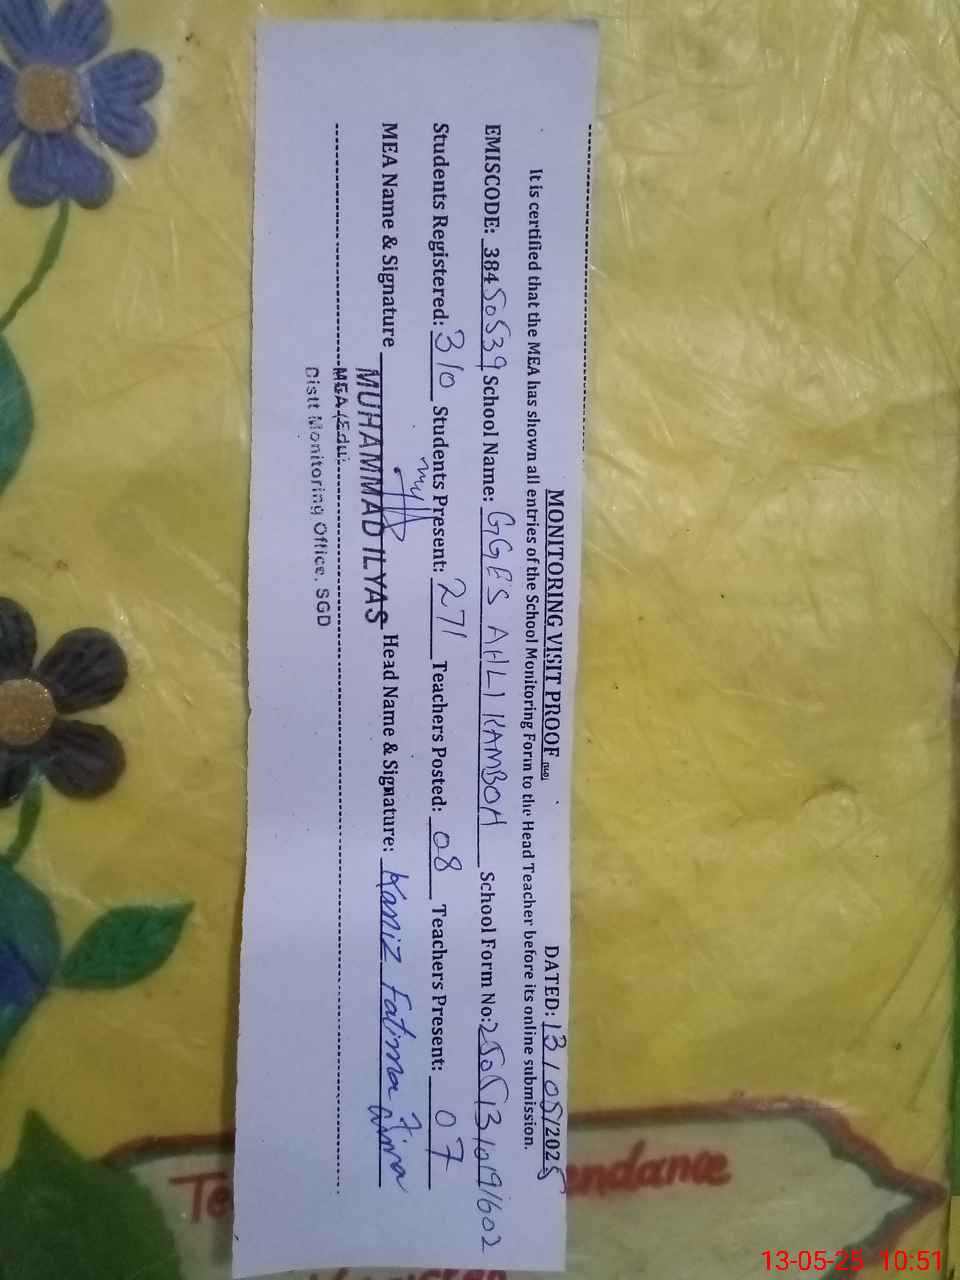 MONITORING VISIT PROOF DATED: 13/05/2025
It is certified that the MEA has shown all entries of the School Monitoring Form to the Head Teacher before its online submission.
EMISCODE: 38450539 School Name: GGES AHLI KAMBOH School Form No:
Students Registered: 310 Students Present: 271 Teachers Posted: 08 Teachers Present: 07
MEA Name & Signature MUHAMMAD ILYAS Head Name & Signature: Kaniz Fatima
MEA (Edu)
Distt Monitoring Office, SGD
endance
13-05-25 10:51